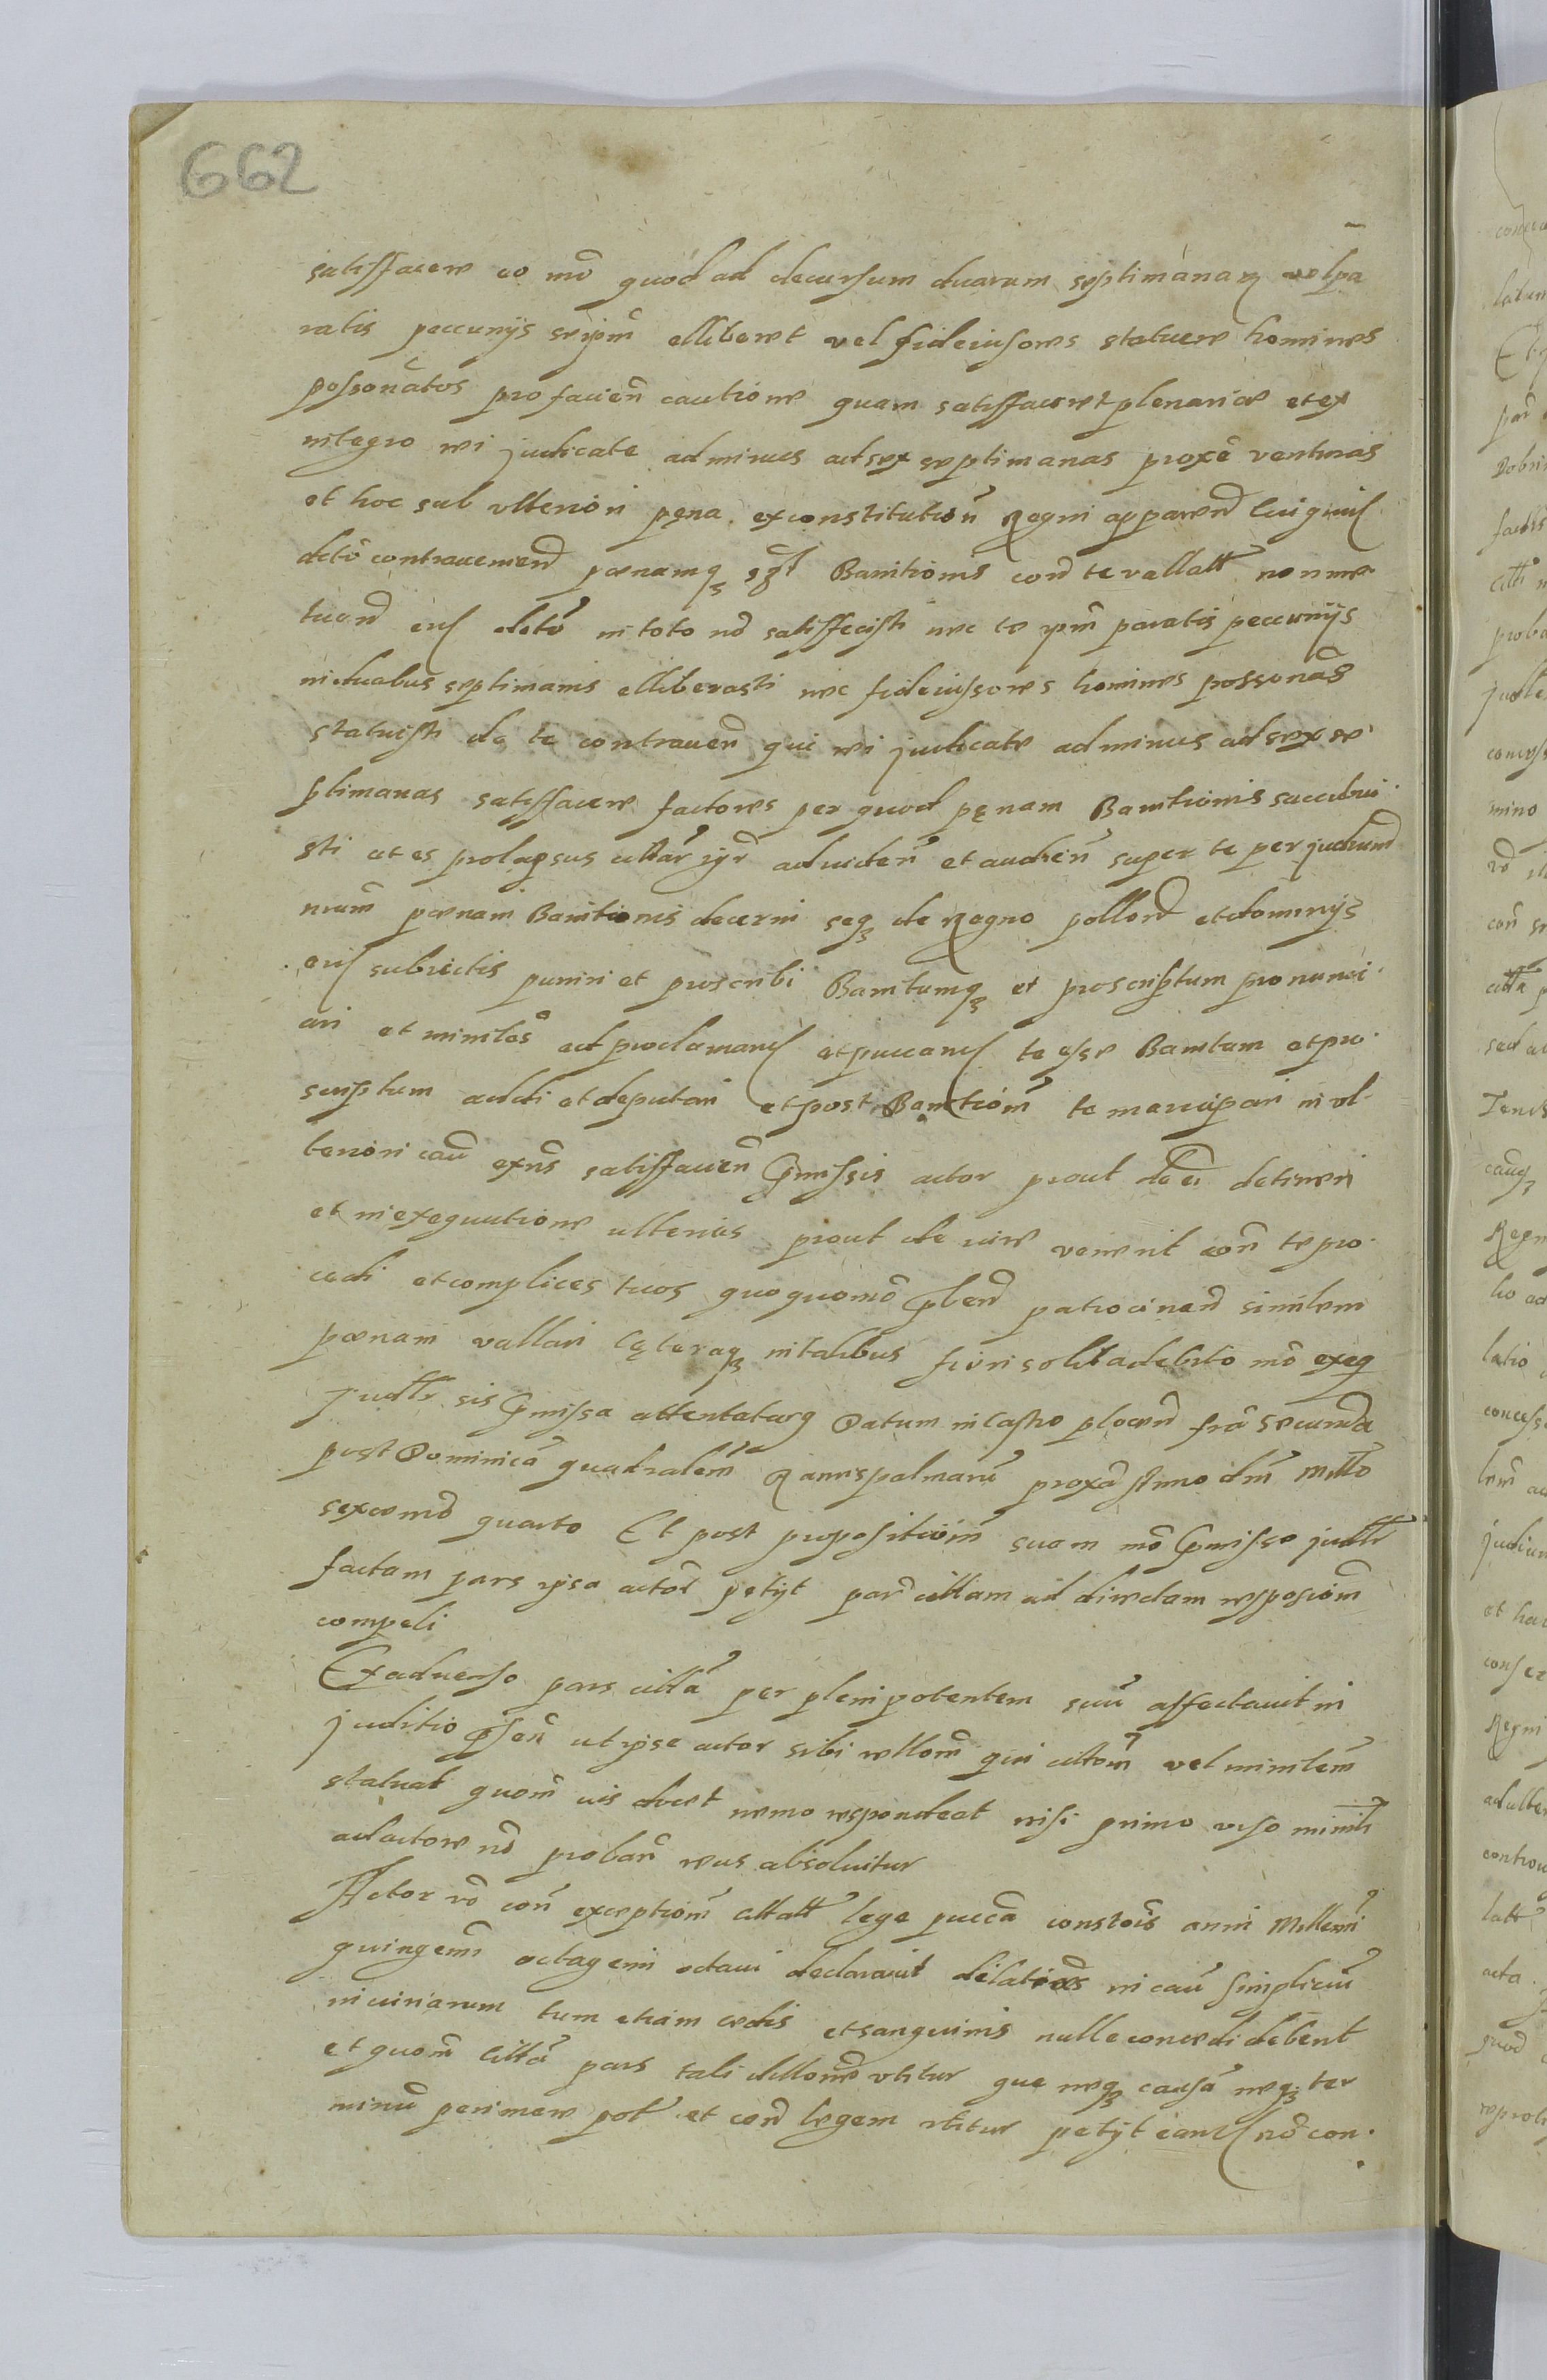 662
satisfacere eo mō quod ad decursum duarum septimanarꝫ vel pa
ratis peccunijs seipm̄ elliberet vel fideiusores statuere homines
possonātos pro facien̄ cautione quam satisfaceret plenariæ et ex
integro rei judicate ad minus ad sex septimanas proxē venturas
et hoc sub vlteriori pęna ex constitution̄ Regni apparen̄
dctō contravenien̄ pœnamqꝫ Banitionis con̄ te vallatt̄ non me
tuen̄ eiꝰ dctō in toto nō satisfecisti nec te ipm̄ paratis peccunijs
in duabus septimanis elliberasti nec fideiussores homines possonās
statuisti de te contraven̄ qui rei judicate ad minus ad sex se
ptimanas satisfacere factores per quod pęnam Banitionis succubui
sti et es prolapsus ad viden̄ et audien̄ super te per judicium
pœnam Banitionis decerni seqꝫ de Regno pollon̄ et dominijs
eiꝰ subiectis puniri et proscribi Banitumqꝫ et proscriptum pronunci
ari et ministeō ad proclamanꝰ et puccanꝰ te esse Banitum et pro
scriptum addi et deputari et post Banitiom̄ te mancipari in vl
teriori cau satisfacien̄ p̄missis actor prout detineri
et in exequutione ulterius prout de iure venerit con̄ te pro
cedi et complices tuos quoquomō p̄ben̄ patrocinen̄ similem
pœnam vallari cęteraqꝫ in talibus fieri solita debito mō exeq
judr̄ sis p̄missa attentaturꝰ Datum in Castro plocen̄ fr̄a secunda
post Dominicā quadralem̄ Ramispalmarū proxā Anno dn̄i Millō
sexcenmō quarto Et post propositiom̄ suam mō p̄misso judr̄
factam pars ipsa actōr petijt par̄ cittam ad directam resposiom̄
compeli
Ex adverso pars cittā per plenipotentem suū affectavit in
juditio p̄sen̄ ut ipse actor sibi rellom̄ qui citom̄ vel ministem̄
statuat quom̄ ius docet nemo respondeat nisi primo viso
ad actore nō proban̄ reus absoluitur
Actor vō con̄ exceptiom̄ allatt̄ lege puccā constōis anni Millem̄i
quingem̄i octagemi octavi declaravit dilatiōes in cau Simplicium
iniuriarum tum etiam cedis et sanguinis nulle concedi debent
et quom̄ cittā pars tali dillone vtitur que neqꝫ causā neqꝫ ter
minū perimere pot et con̄ legem vtitur petijt eanꝰ nō con